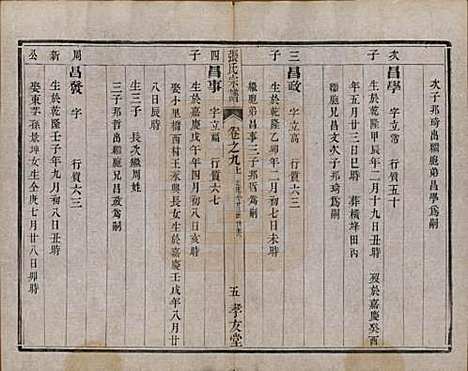 次子邦琦出繼胞弟昌學爲嗣
次子
昌學 字立富 行質五十
生於乾隆甲辰年二月十九日丑時 歿於嘉慶癸酉
年五月廿三日巳時 葬橫埠田內
繼胞兄昌文次子邦琦爲嗣
三子
昌政 字立高 行質六三
生於乾隆乙卯年二月初七日未時
繼胞弟昌事三子邦哲爲嗣
張氏宗譜
卷之九上
五 孝友堂
四子
昌事 字立篇 行質六七
生於乾隆戊午年四月初八日亥時
娶小里橋西林王永興長女生於嘉慶壬戌年八月廿
八日辰時
生三子 長次繼周姓
三子邦哲出繼胞兄昌政爲嗣
周新公
昌發 字 行質六三
生於乾隆壬子年九月初八日丑時
娶東莘孫景坤女生仝庚七月廿八日卯時